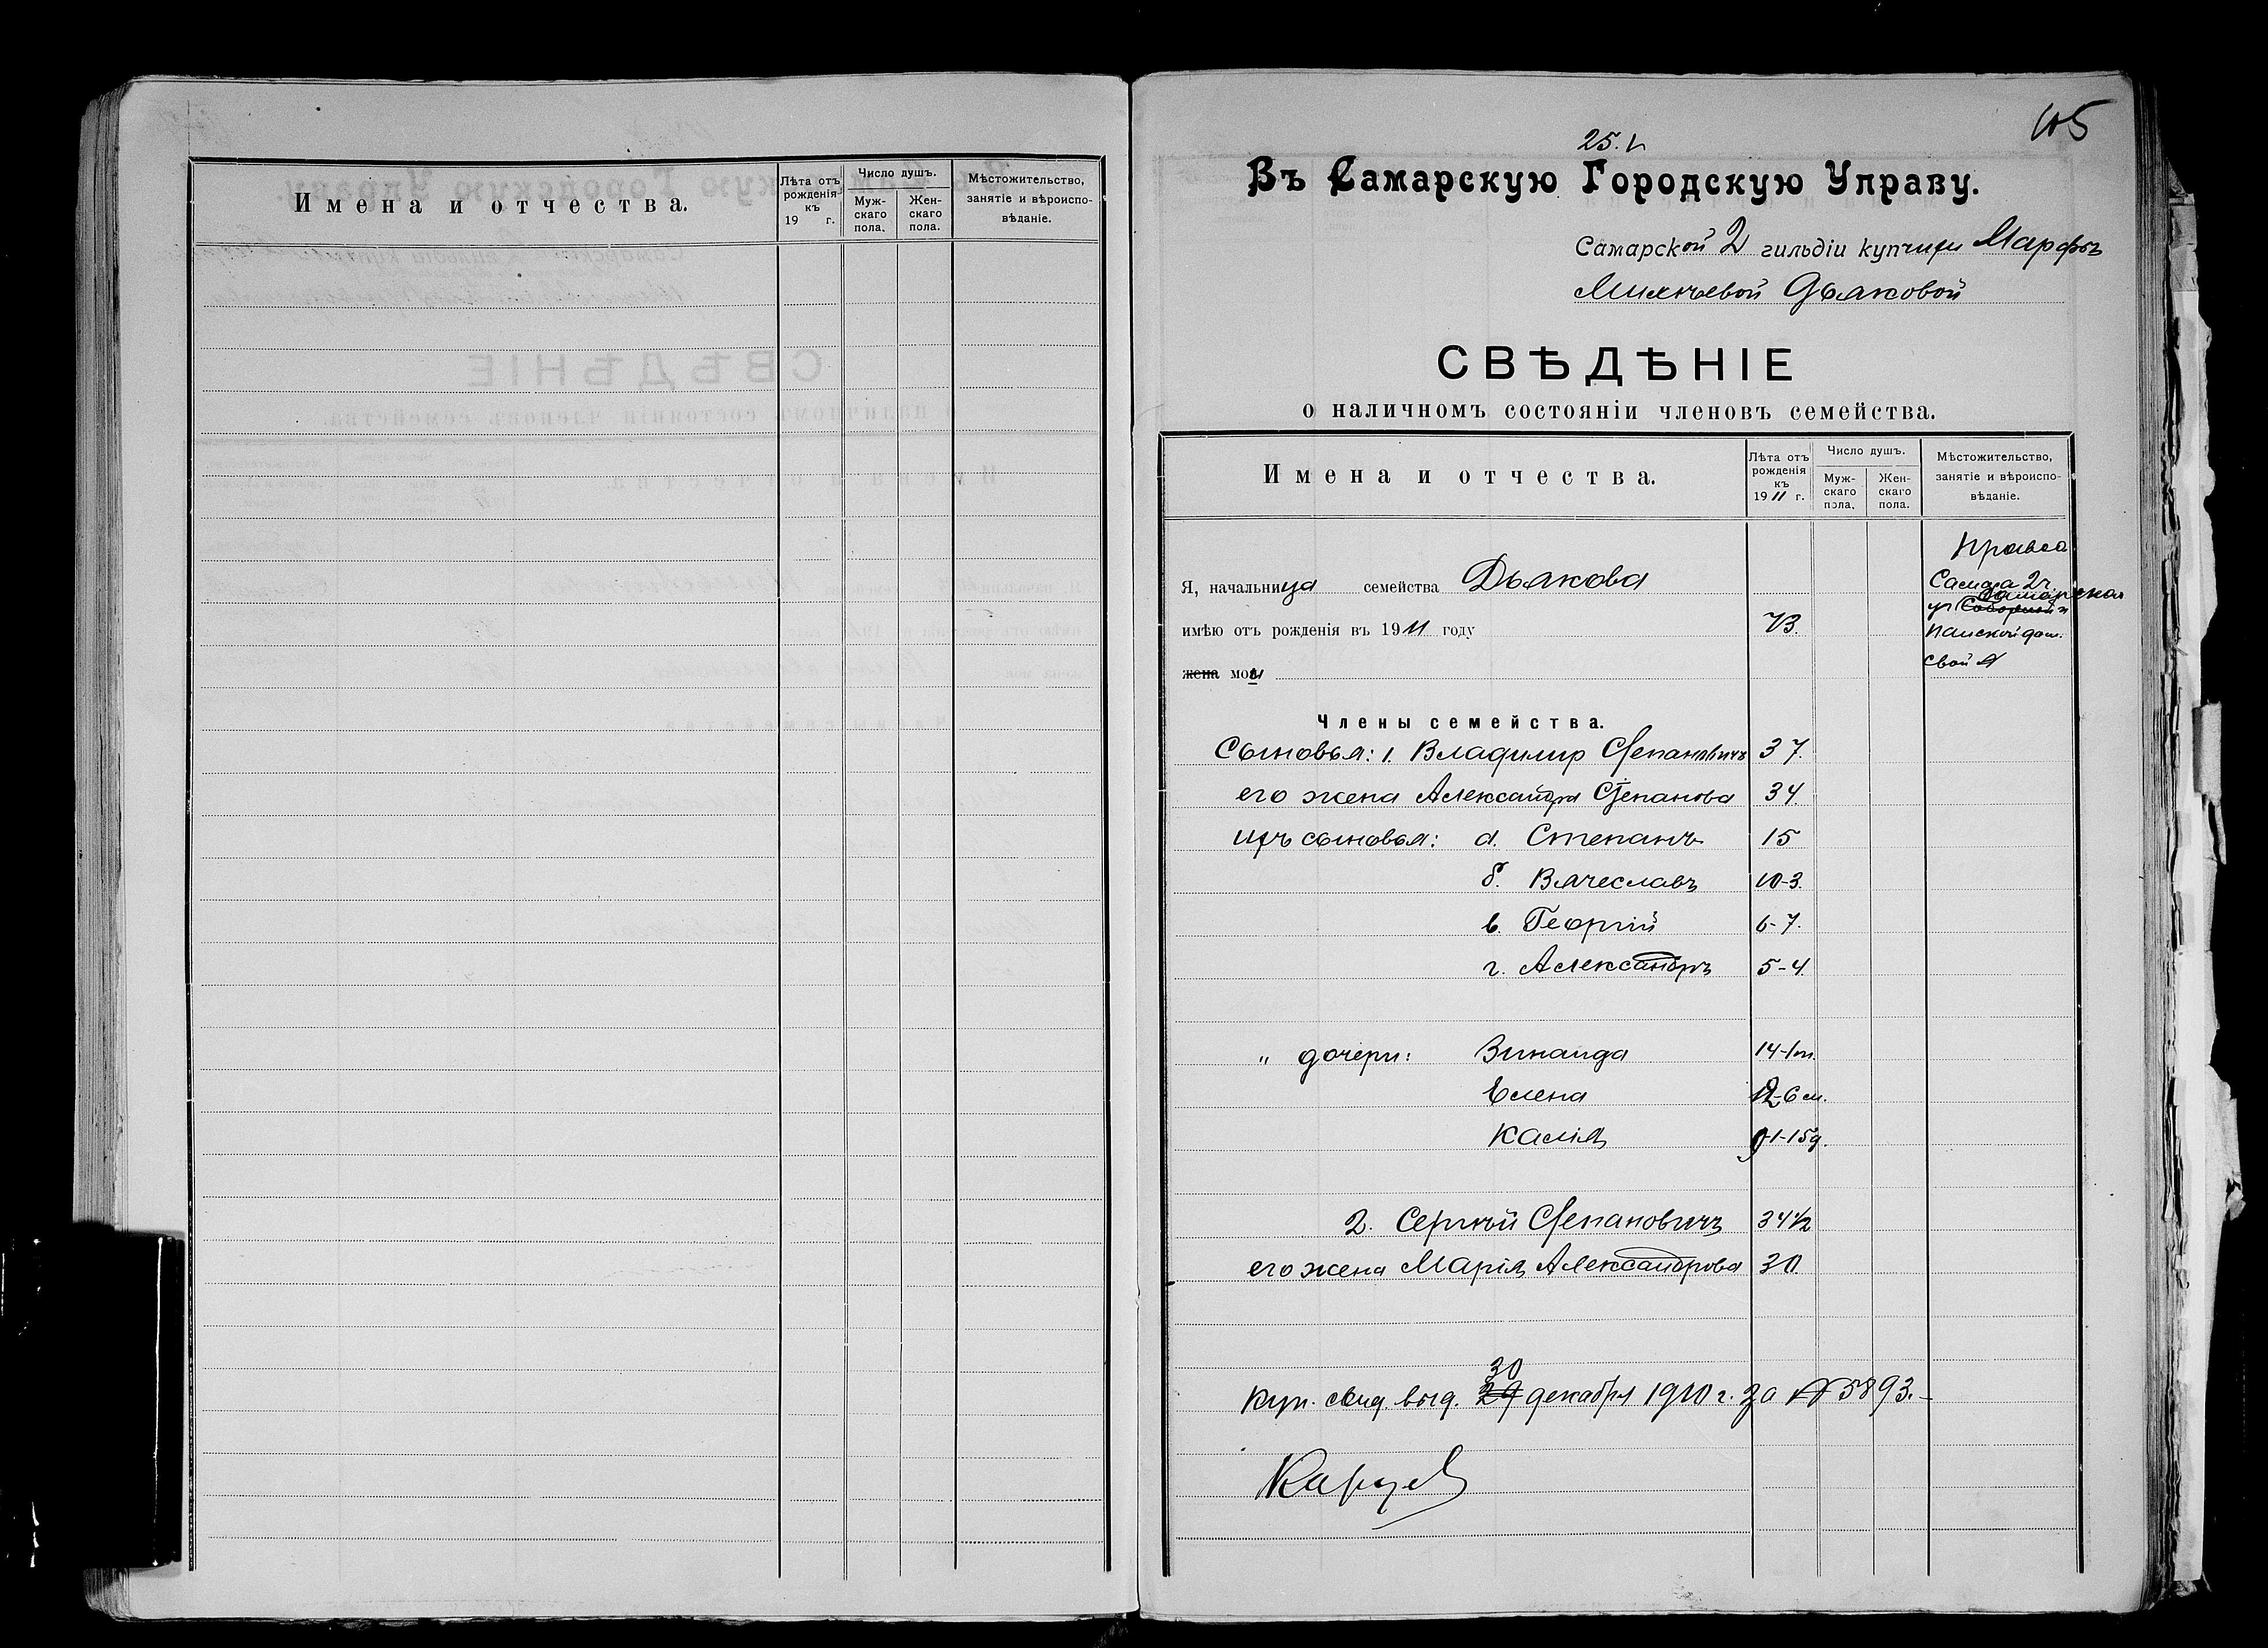 Имена и отчества.
Лѣта отъ рожденія къ 19 г.
Число душъ.
Муж-скаго пола.
Жен-скаго пола.
Мѣстожительство, занятіе и вѣроиспо-вѣданіе.
105
25.I
Въ Самарскую Городскую Управу.
Самарской 2 гильдіи купчихи Марфы
Михѣевой Дьяковой
СВѢДѢНІЕ
о наличномъ состояніи членовъ семейства.
Имена и отчества.
Лѣта отъ рожденія къ 1911 г.
Число душъ.
Муж-скаго пола.
Жен-скаго пола.
Мѣстожительство, занятіе и вѣроиспо-вѣданіе.
Правосл
Я, начальница семейства Дьякова
Самара 2ч
Самарская
ул Соборной и
имѣю отъ рожденія въ 1911 году 73.
Панской дом.
свой
жена моя
Члены семейства.
Сыновья: 1. Владимир Степановичъ 37.
его жена Александра Степанова 34.
ихъ сыновья: а. Степанъ 15
б. Вячеславъ 10-3.
в. Георгій 6-7.
г. Александръ 5-4.
" дочери: Зинаида 14-1м.
Елена 12-6 м.
Капія 9-1-15д.
2. Сергѣй Степановичъ 34½
его жена Марія Александрова 30.
30
Куп. свид. выд. 29 декабря 1910 г. за № 5893.-